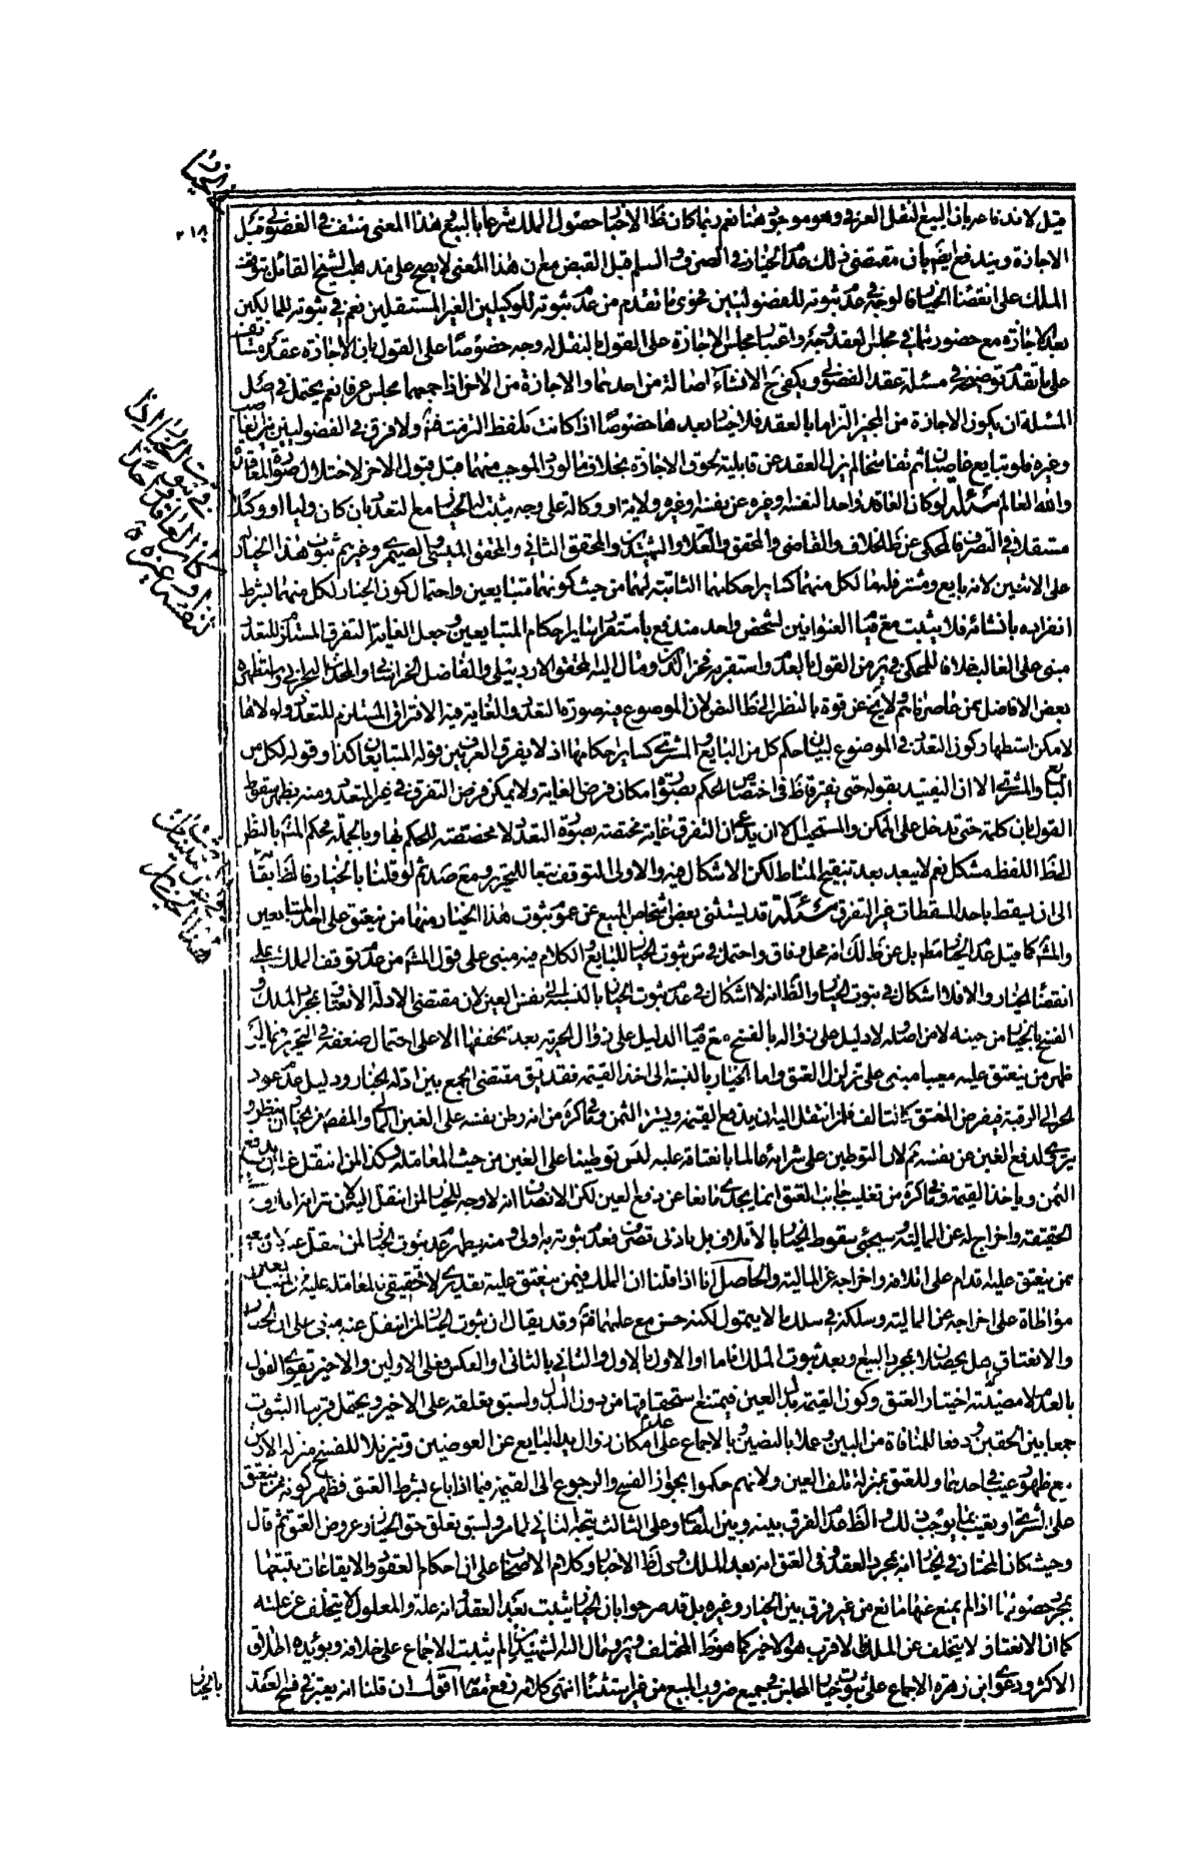 الخيارات
٢١٨
قيل لاندفاعه بان البيع النقل العرفي وهو موجود هنا نعم ربما كان ظ الاخبار حصول الملك شرعا بالبيع وهذا المعنى منتف في الفضولي قبل
الاجازة ويندفع ايضا بان مقتضى ذلك عدم الخيار في الصرف والسلم قبل القبض مع ان هذا المعنى لا يصح على مذهب الشيخ القائل بتوقف
الملك على انقضاء الخيار فالوجه في عدم ثبوته للفضوليين فحوى ما تقدم من عدم ثبوته للوكيلين الغير المستقلين نعم في ثبوته للمالكين
بعد الاجازة مع حضورهما في مجلس العقد وجه واعتبار مجلس الاجازة على القول بالنقل له وجه خصوصا على القول بان الاجازة عقد مستانف
على ما تقدم توضيحه في مسئلة عقد الفضولي ويكفي ح الانشاء اصالة من احدهما والاجازة من الاخر اذا جمعهما مجلس عرفا نعم يحتمل في اصل
المسئلة ان يكون الاجازة من المجيز التزاما بالعقد فلا خيار بعدها خصوصا اذا كانت بلفظ التزمت فتم ولا فرق في الفضوليين بين الغاصب
وغيره فلو تبايع غاصبان ثم تفاسخا لم يزل العقد عن قابلية لحوق الاجازة بخلاف ما لو رد الموجب منهما قبل قبول الاخر لاختلال صورة المعاقدة
والله العالم مسئلة لو كان العاقد واحدا لنفسه او غيره عن نفسه او غيره ولاية او وكالة على وجه يثبت له الخيار مع التعدد بان كان وليا او وكيلا
مستقلا في التصرف فالمحكى عن ظ الخلاف والقاضي والمحقق والعلامة والشهيدين والمحقق الثاني والمحقق الميسي والصيمري وغيرهم ثبوت هذا الخيار
على الاثنين لانه بايع ومشتر فله ما لكل منهما كساير احكامهما الثابتة لهما من حيث كونهما متبايعين واحتمال كون الخيار لكل منهما بشرط
انفراده بانشائه فلا يثبت مع قيام العنوانين لشخص واحد مندفع باستقرار ساير احكام المتبايعين وجعل الغاية التفرق المستلزم للتعدد
مبنى على الغالب خلافا للمحكى في ير من القول بالعدم واستقربه فخر الدين ومال اليه المحقق الاردبيلي والفاضل الخراساني والمحدث البحراني واستظهره
بعض الافاضل ممن عاصرناهم ولا يخ عن قوة بالنظر الى ظ النص لان الموضوع فيه صورة التعدد والغاية فيه الافتراق المستلزم للتعدد ولولاها
لامكن استظهار كون التعدد في الموضوع لبيان حكم كل من البايع والمشتري كساير احكامهما اذ لا يفرق العرف بين قوله المتبايعان كذا وقوله لكل من
البايع والمشتري الا ان التقييد بقوله حتى يفترقا ظ في اختصاص الحكم بصورة امكان فرض الغاية ولا يمكن فرض التفرق في غير المتعدد ومنه يظهر سقوط
القول بان كلمة حتى تدخل على الممكن والمستحيل الا ان يدعى ان التفرق غاية مختصة بصورة التعدد لا مخصصة للحكم بها وبالجملة فحكم المشه بالنظر
الى ظ اللفظ مشكل نعم لا يبعد بعد تنقيح المناط لكن الاشكال فيه والاولى التوقف تبعا للتحرير ومع صد ثم لو قلنا بالخيار فالظ بقاؤه
الى ان يسقط باحد المسقطات غير التفرق مسئلة قد يستثنى بعض اشخاص المبيع عن عموم ثبوت هذا الخيار منها من ينعتق على احد المتبايعين
والمشه كما قيل عدم الخيار مطلقا بل عن ظ لك انه محل وفاق واحتمل في س ثبوت الخيار للبايع والكلام فيه مبنى على قول المشه من عدم توقف الملك على
انقضاء الخيار والا فلا اشكال في ثبوت الخيار والظ انه لا اشكال في عدم ثبوت الخيار بالنسبة الى نفس العين لان مقتضى الادلة الانعتاق بمجرد الملك و
الفسخ بالخيار من حينه لا من اصله ولا دليل على زواله بالفسخ مع قيام الدليل على زوال الحرية بعد تحققها الا على احتمال ضعفه في التحرير فيما لو
ظهر من ينعتق عليه معيبا مبنى على تزلزل العتق واما الخيار بالنسبة الى اخذ القيمة فقد يق مقتضى الجمع بين ادلة الخيار ودليل عدم عود
الحر الى الرقية فيفرض المعتق كالتالف فلمن انتقل اليه ان يدفع القيمة ويسترد الثمن وما في كرة من انه وطن نفسه على الغبن المالي والمقصود من الخيار ان ينظر و
يتروى لدفع الغبن عن نفسه ثم لان التوطين على شرائه عالما بانعتاقه عليه ليس توطينا على الغبن من حيث المعاملة وكذا لمن انتقل عنه ان يدفع
الثمن وياخذ القيمة وما في كرة من تغليب جانب العتق انما يجدى مانعا عن دفع العين لكن الانصاف انه لا وجه للخيار لمن انتقل اليه لان شرائه اتلاف في
الحقيقة واخراج له عن المالية وسيجئ سقوط الخيار بالاتلاف بل بادنى تصرف فعدم ثبوته به اولى ومنه يظهر عدم ثبوت الخيار لمن انتقل عنه لان بيعه
ممن ينعتق عليه اقدام على اتلافه واخراجه عن المالية والحاصل انا اذا قلنا ان الملك فيمن ينعتق عليه تقديرى لا تحقيقى فالمعاملة عليه من المتبايعين
مواطاة على اخراجه عن المالية وسلكه في سلك ما لا يتمول لكنه حسن مع علمهما فتم وقد يقال ان ثبوت الخيار لمن انتقل عنه مبنى على ان الخيار
والانعتاق هل يحصلان بمجرد البيع او بعد ثبوت الملك اناما او الاول بالاول والثاني بالثاني او العكس فعلى الاولين والاخير يقوى القول
بالعدم لامضيية اخبار العتق وكون القيمة بدل العين فيمتنع استحقاقها من دون المبدل ولسبق تعلقه على الاخير ويحتمل قريبا الثبوت
جمعا بين الحقين ودفعا للمنافاة من البين وعملا بالنصين وبالاجماع على عدم امكان زوال يد البايع عن العوضين وتنزيلا للفسخ منزلة الارش
مع ظهور عيب في احدهما وللعتق بمنزلة تلف العين ولانهم حكموا بجواز الفسخ والرجوع الى القيمة فيما اذا باع بشرط العتق فظهر كونه ممن ينعتق
على المشتري او تعيب بما يوجب ذلك والظ عدم الفرق بينه وبين المقام وعلى الثالث يتجه الثاني لما مر ولسبق تعلق حق الخيار وعروض العتق ثم قال
وحيث كان المختار في الخيار انه بمجرد العقد وفي العتق انه بعد الملك ودل ظ الاخبار وكلام الاصحاب على ان احكام العقود والايقاعات تتبعها
بمجرد حصولها اذا لم يمنع عنها مانع من غير فرق بين الخيار وغيره بل قد صرحوا بان الخيار يثبت بعد العقد وانه علة والمعلول لا يتخلف عن علته
كما ان الانعتاق لا يتخلف عن الملك فالاقرب هو الاخير كما هو ظ المختلف وير ومال اليه الشهيدان ان لم يثبت الاجماع على خلافه ويؤيده اطلاق
الاكثر ودعوى ابن زهرة الاجماع على ثبوت خيار المجلس في جميع ضروب المبيع من غير استثناء انتهى كلامه رفع مقامه اقول ان قلنا انه يعتبر في فسخ العقد
بالخيار
في ثبوت الخيار اذا كان العاقد واحدا لنفسه او غيره